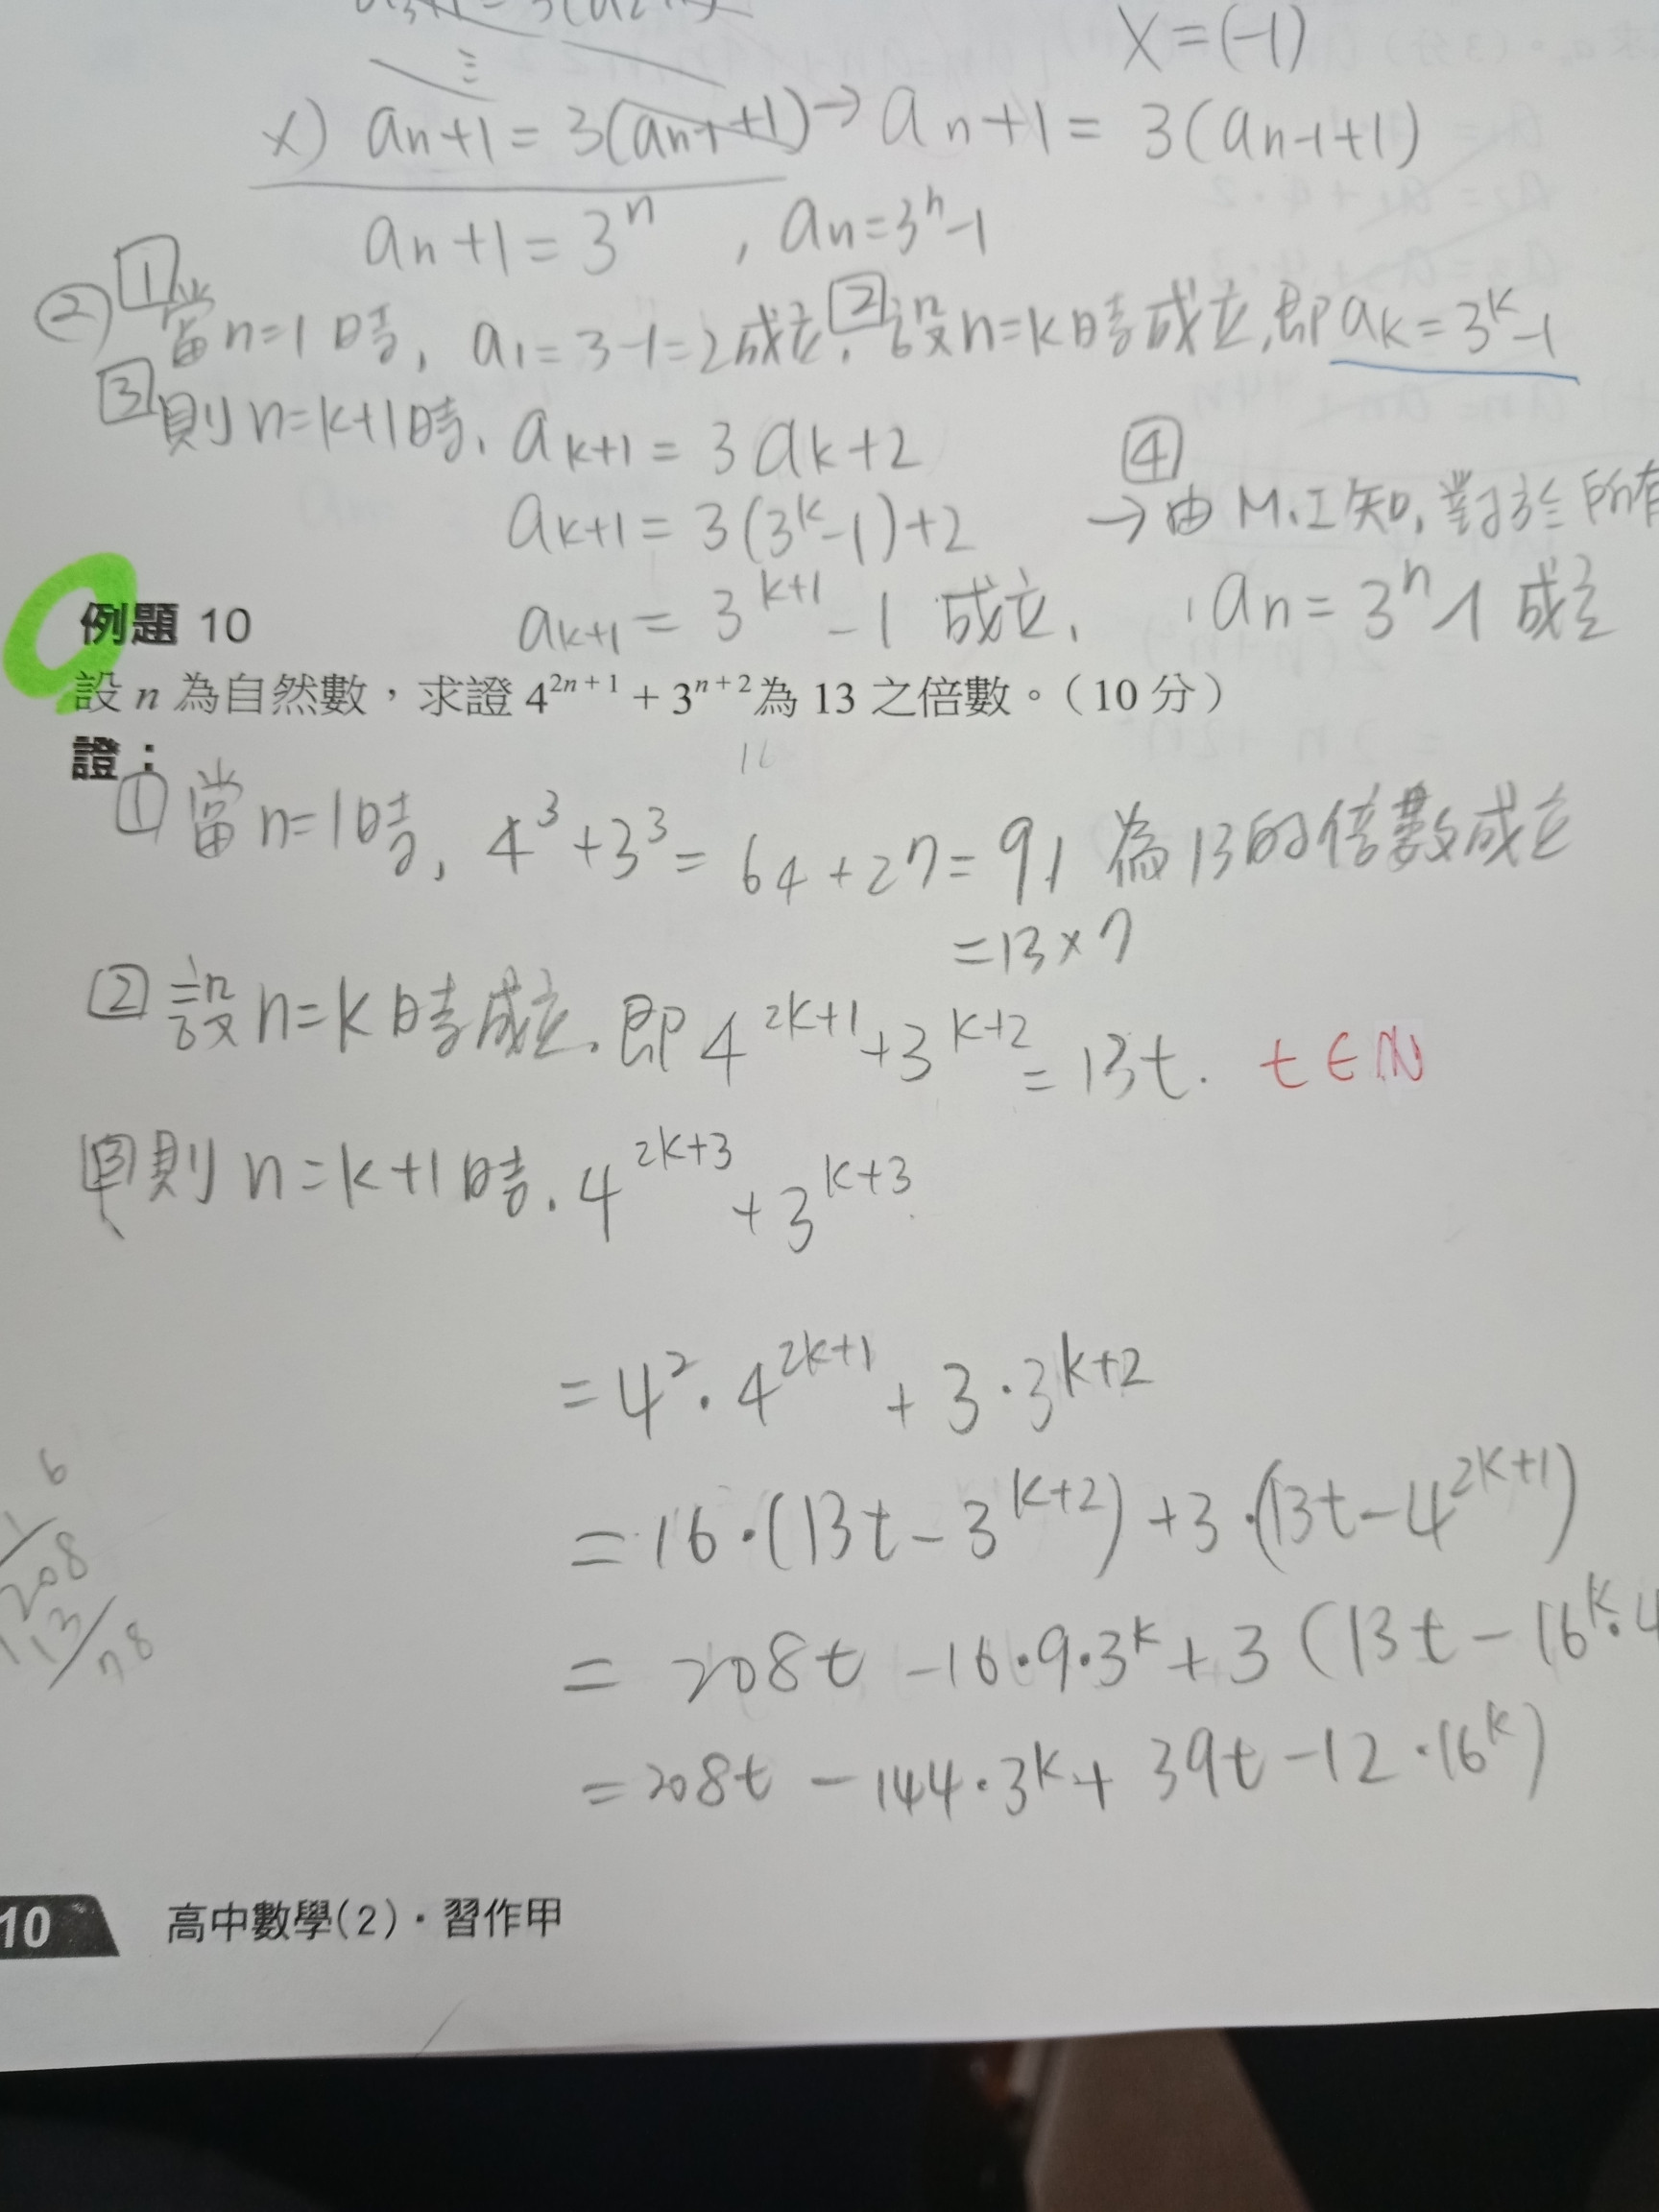 x = (-1)
x) an+1 = 3(an-1+1) → an+1 = 3(an-1+1)
an+1 = 3ⁿ , an = 3ⁿ-1
② 1 當n=1時, a1=3-1=2成立, 2 設n=k時成立,即ak=3ᵏ-1
3 則n=k+1時, ak+1 = 3ak+2
4
ak+1 = 3(3ᵏ-1)+2 → 由M.I知,對於所有
ak+1 = 3ᵏ⁺¹ - 1 成立, , an = 3ⁿ-1 成立
例題 10
設 n 為自然數,求證 4²ⁿ⁺¹ + 3ⁿ⁺² 為 13 之倍數。(10 分)
證:
16
1 當n=1時, 4³+3³ = 64+27 = 91 為13的倍數成立
=13×7
2 設n=k時成立,即4²ᵏ⁺¹+3ᵏ⁺² = 13t. t∈N
3 則n=k+1時, 4²ᵏ⁺³+3ᵏ⁺³
= 4²·4²ᵏ⁺¹ + 3·3ᵏ⁺²
= 16·(13t-3ᵏ⁺²)+3·(13t-4²ᵏ⁺¹)
= 208t -16·9·3ᵏ+3(13t-16ᵏ·4
= 208t - 144·3ᵏ+39t-12·16ᵏ)
6
208
13
78
10 高中數學(2)·習作甲